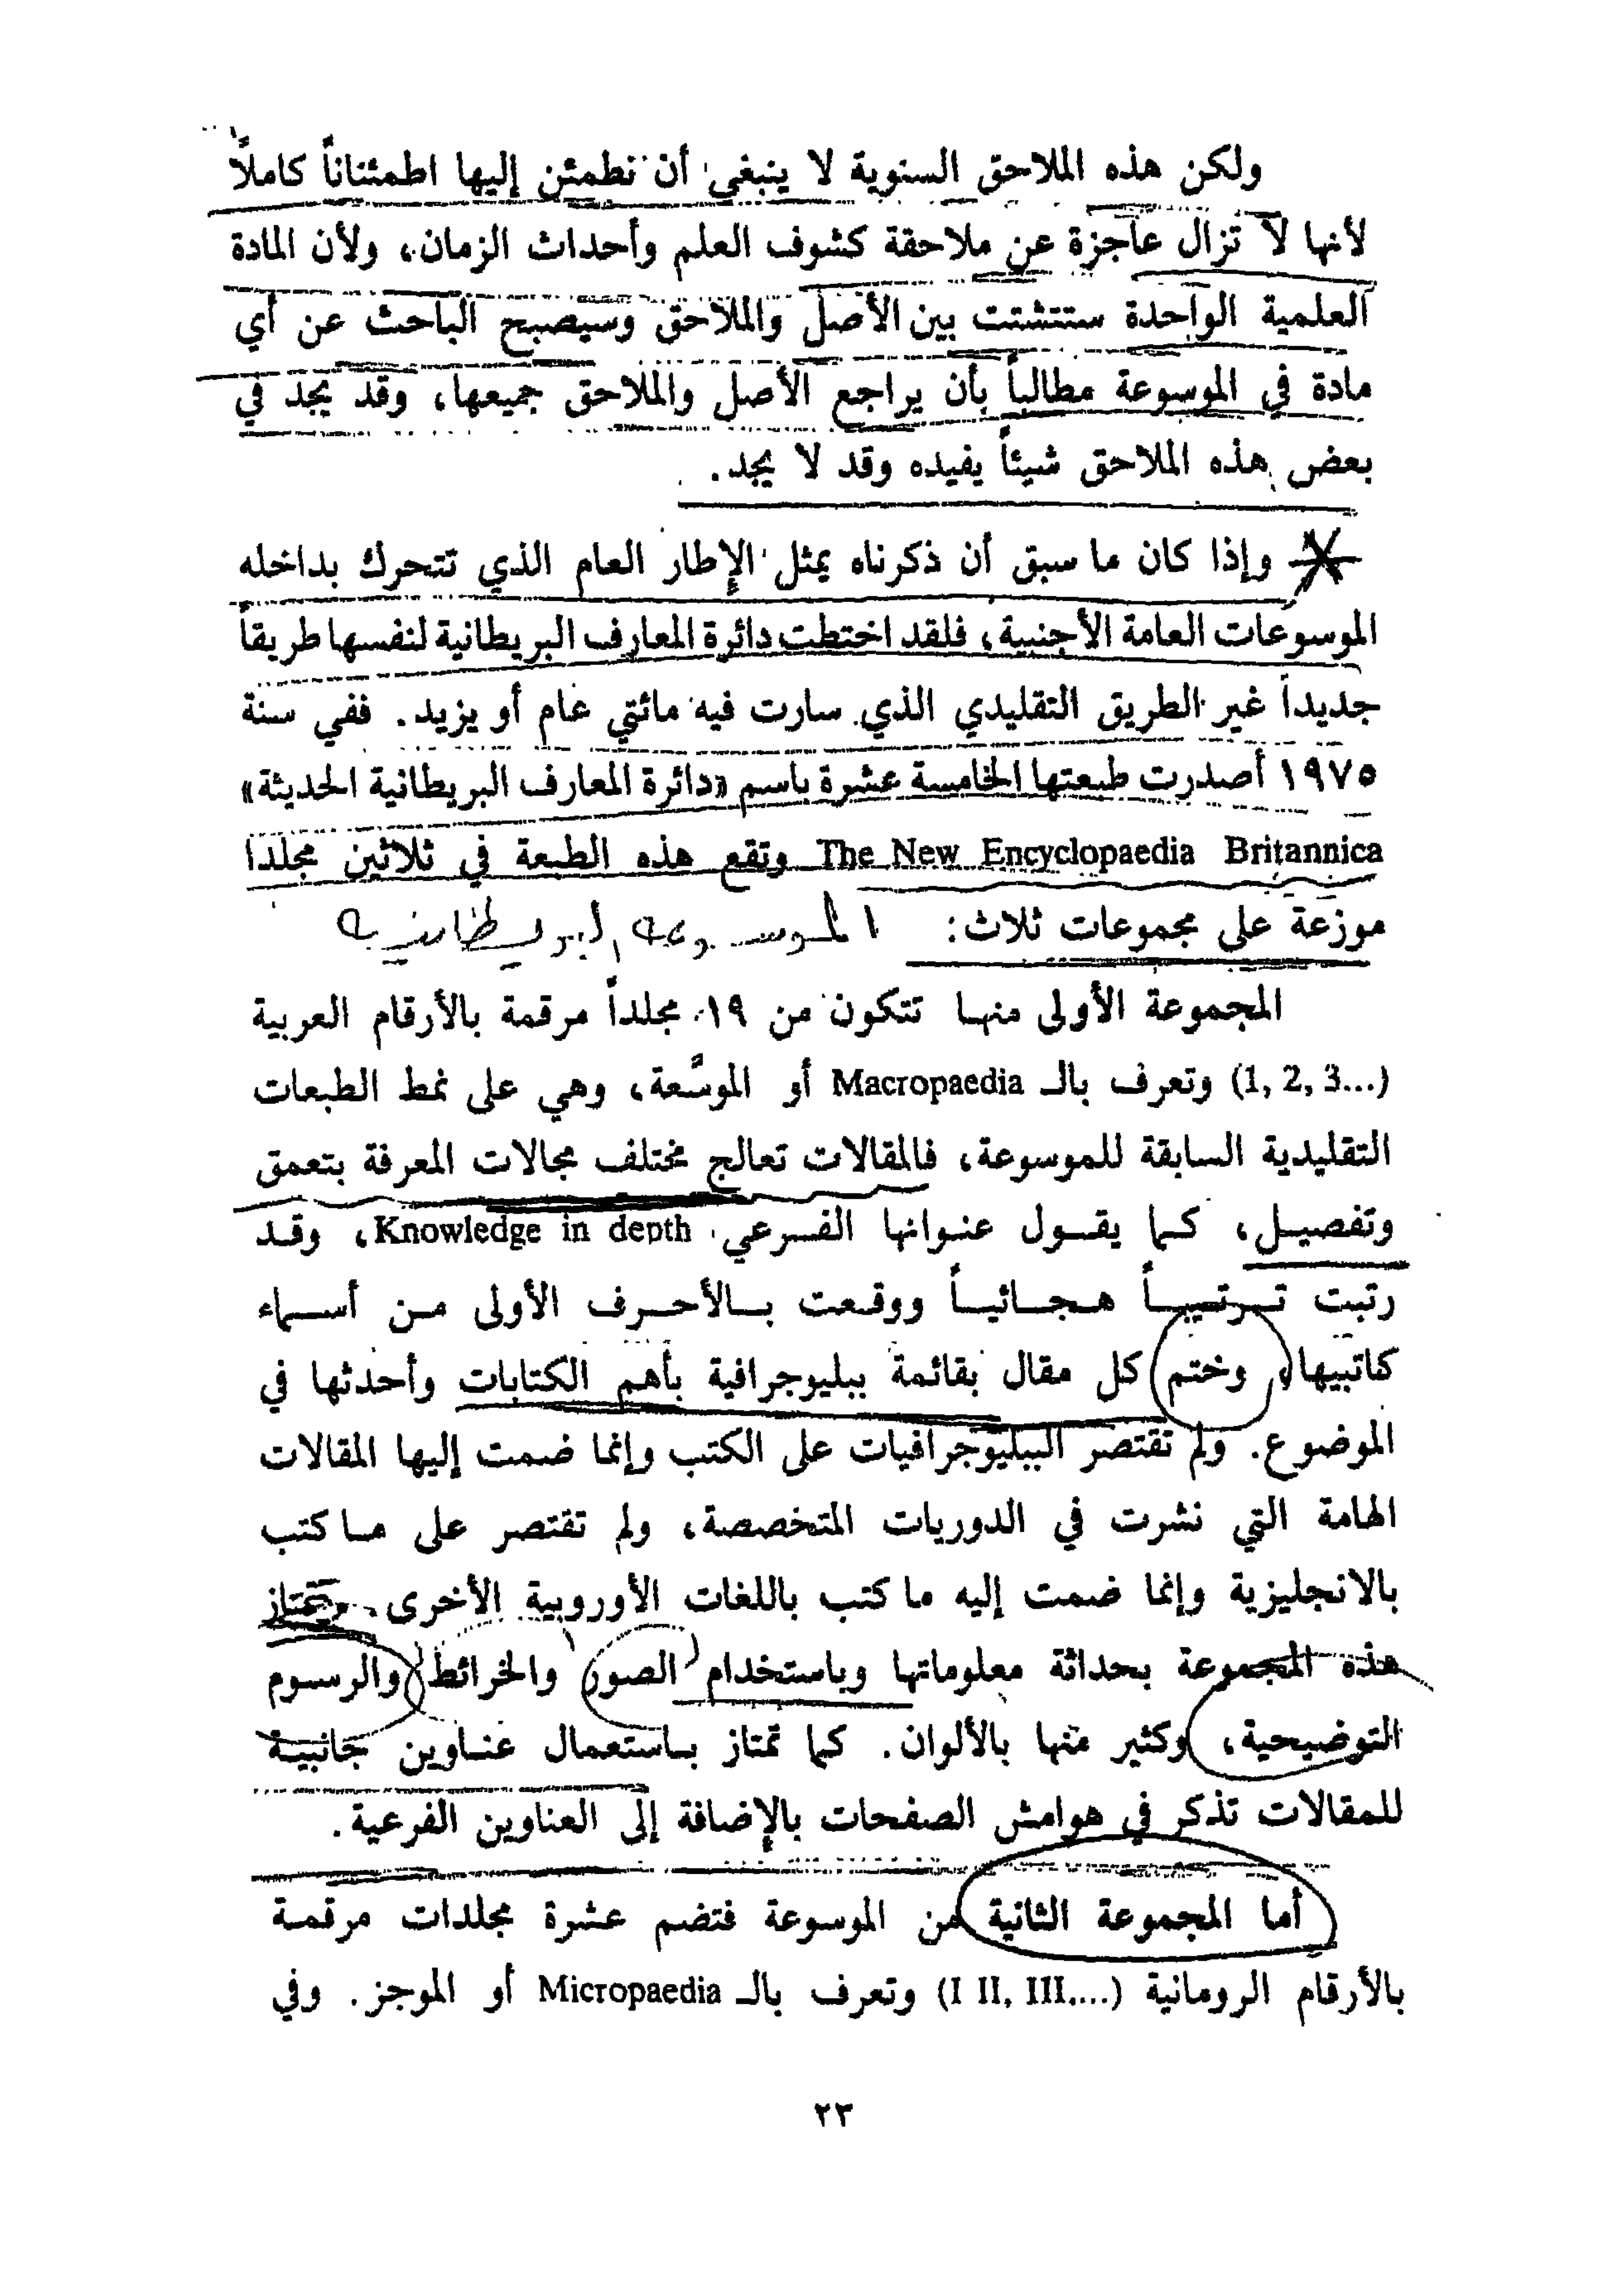 ولكن هذه الملاحق السنوية لا ينبغي أن نطمئن إليها اطمئناناً كاملاً
لأنها لا تزال عاجزة عن ملاحقة كشوف العلم وأحداث الزمان، ولأن المادة
العلمية الواحدة ستتشتت بين الأصل والملاحق وسيصبح الباحث عن أي
مادة في الموسوعة مطالباً بأن يراجع الأصل والملاحق جميعها، وقد يجد في
بعض هذه الملاحق شيئاً يفيده وقد لا يجد.
وإذا كان ما سبق أن ذكرناه يمثل الإطار العام الذي تتحرك بداخله
الموسوعات العامة الأجنبية، فلقد اختطت دائرة المعارف البريطانية لنفسها طريقاً
جديداً غير الطريق التقليدي الذي سارت فيه مائتي عام أو يزيد. ففي سنة
١٩٧٥ أصدرت طبعتها الخامسة عشرة باسم «دائرة المعارف البريطانية الحديثة»
The New Encyclopaedia Britannica وتقع هذه الطبعة في ثلاثين مجلداً
موزعة على مجموعات ثلاث: الموسوعة البريطانية
المجموعة الأولى منها تتكون من ١٩ مجلداً مرقمة بالأرقام العربية
(1, 2, 3...) وتعرف بالـ Macropaedia أو الموسَّعة، وهي على نمط الطبعات
التقليدية السابقة للموسوعة، فالمقالات تعالج مختلف مجالات المعرفة بتعمق
وتفصيل، كما يقول عنوانها الفرعي Knowledge in depth، وقد
رتبت ترتيباً هجائياً ووقعت بالأحرف الأولى من أسماء
كاتبيها، وختم كل مقال بقائمة ببليوجرافية بأهم الكتابات وأحدثها في
الموضوع. ولم تقتصر الببليوجرافيات على الكتب وإنما ضمت إليها المقالات
الهامة التي نشرت في الدوريات المتخصصة، ولم تقتصر على ما كتب
بالانجليزية وإنما ضمت إليه ما كتب باللغات الأوروبية الأخرى. وتمتاز
هذه المجموعة بحداثة معلوماتها وباستخدام الصور والخرائط والرسوم
التوضيحية، وكثير منها بالألوان. كما تمتاز باستعمال عناوين جانبية
للمقالات تذكر في هوامش الصفحات بالإضافة إلى العناوين الفرعية.
أما المجموعة الثانية من الموسوعة فتضم عشرة مجلدات مرقمة
بالأرقام الرومانية (I II, III,...) وتعرف بالـ Micropaedia أو الموجز. وفي
٢٣